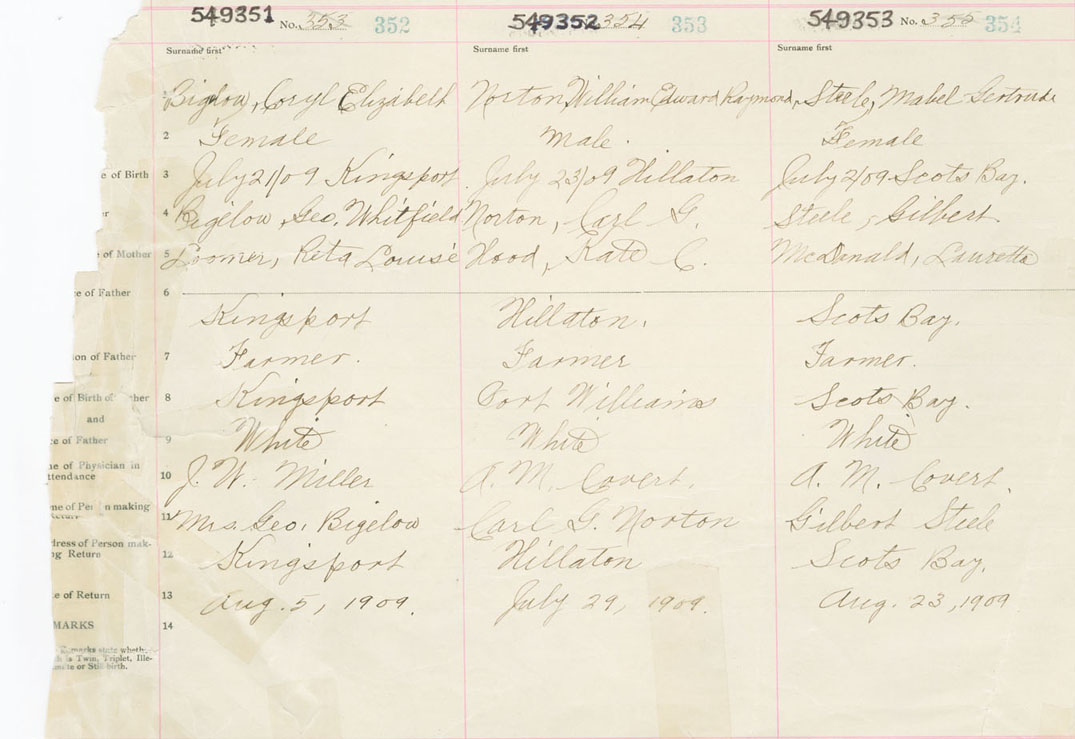 549351 No. 353 352 549352 354 353 549353 No. 355 354
Surname first Surname first Surname first
1 Bigelow, Coryl Elizabeth Norton William Edward Raymond, Steele, Mabel Gertrude
2 Female Male. Female
e of Birth 3 July 21/09 Kingsport. July 23/09 Hillaton July 2/09 Scots Bay.
er 4 Bigelow, Geo. Whitfield Norton, Carl G. Steele, Gilbert
e of Mother 5 Loomer, Rita Louise Hood, Kate C. McDonald, Lauretta
ce of Father 6
Kingsport Hillaton. Scots Bay.
ion of Father 7 Farmer. Farmer Farmer.
e of Birth of ther 8 Kingsport Port Williams Scots Bay.
and
ce of Father 9 White White White
ne of Physician in
ttendance 10 J. W. Miller A. M. Covert. A. M. Covert.
me of Pe n making
11 Mrs. Geo. Bigelow Carl G. Norton Gilbert Steele
dress of Person mak-
ng Return 12 Kingsport Hillaton Scots Bay.
e of Return 13 Aug. 5, 1909. July 29, 1909. Aug. 23, 1909
MARKS 14
marks state wheth
is Twin, Triplet, Ille-
te or Still-birth.